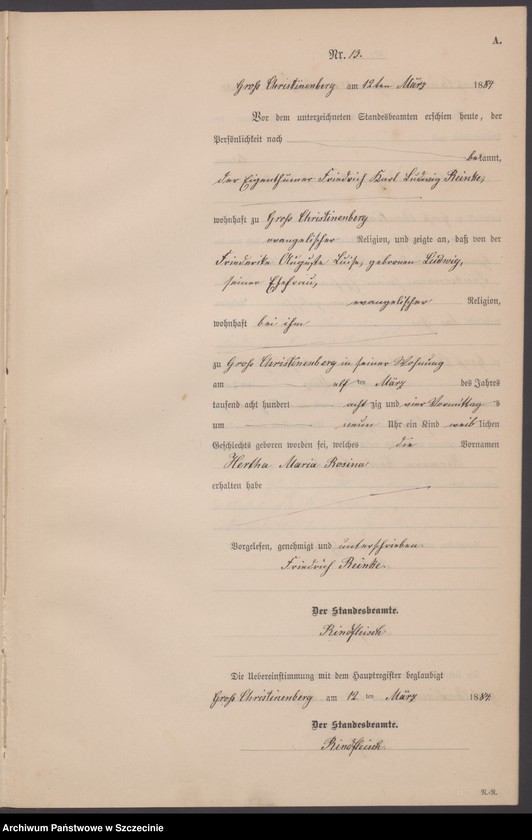 A.
Nr. 13.
Groß Christinenberg am 12ten März 1884
Vor dem unterzeichneten Standesbeamten erschien heute, der
Persönlichkeit nach
bekannt,
der Eigenthümer Friedrich Karl Ludwig Reinke,
wohnhaft zu Groß Christinenberg
evangelischer Religion, und zeigte an, daß von der
Friederike Auguste Luise, geborenen Ludwig,
seiner Ehefrau,
evangelischer Religion,
wohnhaft bei ihm
zu Groß Christinenberg in seiner Wohnung
am elf ten März des Jahres
tausend acht hundert acht zig und vier Vormittag s
um neun Uhr ein Kind weib lichen
Geschlechts geboren worden sei, welches die Vornamen
Hertha Maria Rosina
erhalten habe
Vorgelesen, genehmigt und unterschrieben
Friedrich Reinke.
Der Standesbeamte.
Rindfleisch
Die Uebereinstimmung mit dem Hauptregister beglaubigt
Groß Christinenberg am 12 ten März 1884.
Der Standesbeamte.
Rindfleisch
R.-R.
Archiwum Państwowe w Szczecinie